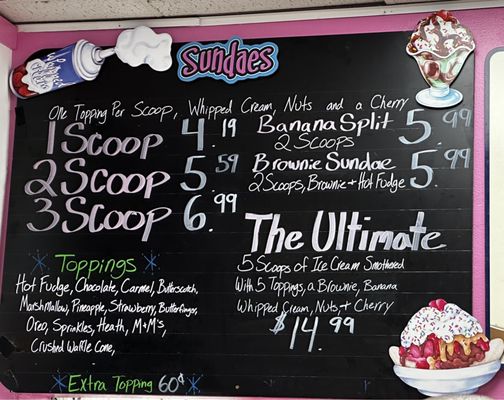 Sundaes
One Topping Per Scoop, Whipped Cream, Nuts and a Cherry
1 Scoop 4.19
2 Scoop 5.59
3 Scoop 6.99
Banana Split 5.99
2 Scoops
Brownie Sundae 5.99
2 Scoops, Brownie + Hot Fudge
The Ultimate
5 Scoops of Ice Cream Smothered
With 5 Toppings, a Brownie, Banana
Whipped Cream, Nuts, + Cherry
$14.99
Toppings
Hot Fudge, Chocolate, Carmel, Butterscotch,
Marshmallow, Pineapple, Strawberry, Butterfinger,
Oreo, Sprinkles, Heath, M+M's,
Crushed Waffle Cone,
Extra Topping 60¢